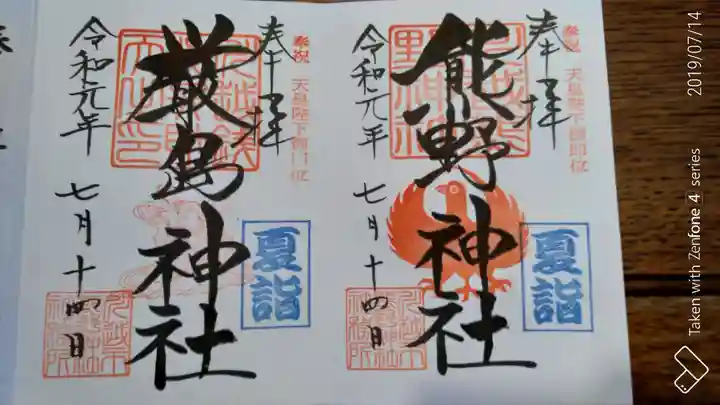 奉拝
奉祝 天皇陛下御即位
熊野神社
夏詣
令和元年 七月十四日
奉拝
奉祝 天皇陛下御即位
厳島神社
夏詣
令和元年 七月十四日
2019/07/14
Taken with Zenfone 4 series